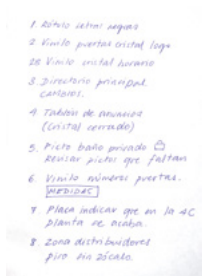 1. Rótulo letras negras
2 Vinilo puertas cristal logo
2B Vinilo cristal horario
3. Directorio principal
cambios.
4 Tablón de anuncios
(cristal cerrado)
5. Picto baño privado
Revisar pictos que faltan
6. Vinilo números puertas.
MEDIDAS
7 Placa indicar que en la 4C
planta se acaba.
8. Zona distribuidores
piso sin zócalo.